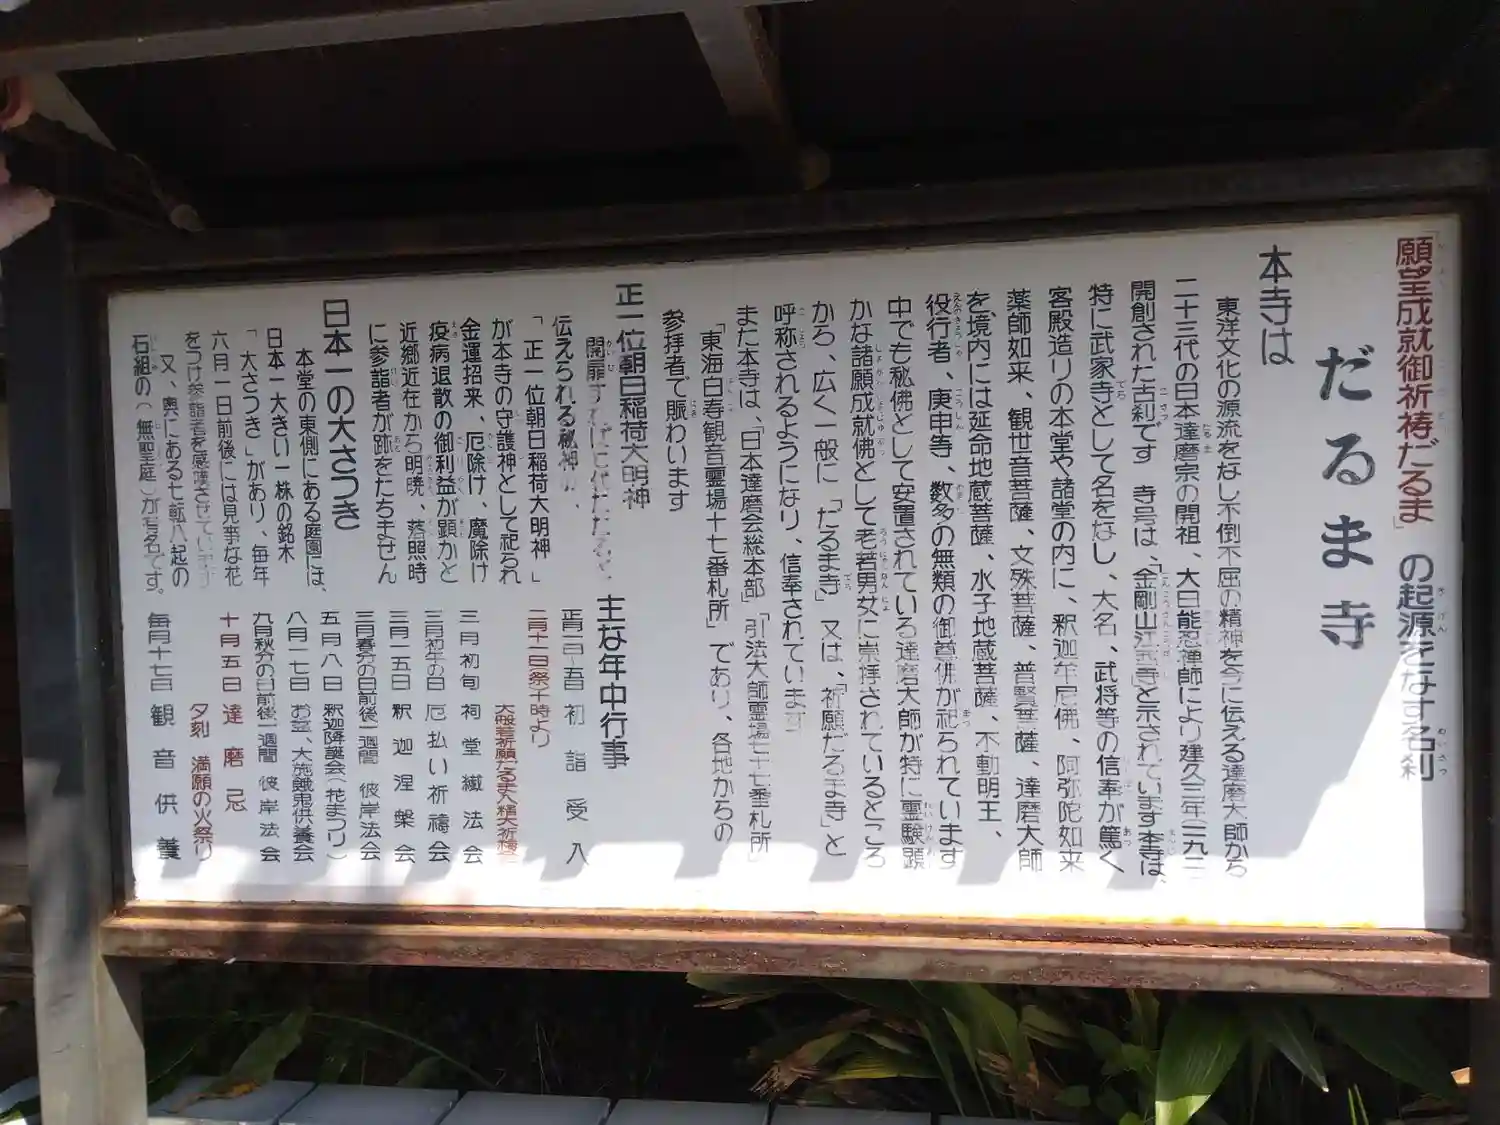 「願望成就御祈祷だるま」の起源をなす名刹
だるま寺
本寺は
東洋文化の源流をなし不倒不屈の精神を今に伝える達磨大師から
二十三代の日本達磨宗の開祖、大日能忍禅師により建久三年
開創された古刹です 寺号は、「金剛山江国寺」と示されています 本寺は、
特に武家寺として名をなし、大名、武将等の信奉が篤く
客殿造りの本堂や諸堂の内に、釈迦牟尼佛、阿弥陀如来
薬師如来、観世音菩薩、文殊菩薩、普賢菩薩、達磨大師
を、境内には延命地蔵菩薩、水子地蔵菩薩、不動明王、
役行者、庚申等、数多の無類の御尊佛が祀られています
中でも秘佛として安置されている達磨大師が特に霊験顕
かな諸願成就佛として老若男女に崇拝されているところ
から、広く一般に「だるま寺」又は、「祈願だるま寺」と
呼称されるようになり、信奉されています
また本寺は、「日本達磨会総本部」「引法大師霊場七十七番札所」
「東海白寿観音霊場十七番札所」であり、各地からの
参拝者で賑わいます
正一位朝日稲荷大明神
開扉すれば
伝えられる秘神
「正一位朝日稲荷大明神」
が本寺の守護神として祀られ
金運招来、厄除け、魔除け
疫病退散の御利益が顕かと
近郷近在から明暁、落照時
に参詣者が跡をたちません
日本一の大さつき
本堂の東側にある庭園には、
日本一大きい一株の銘木
「大さつき」があり、毎年
六月一日前後には見事な花
をつけ参詣者を感嘆させています
又、奥にある七転八起の
石組の(無聖庭)が有名です。
主な年中行事
初詣受入
二月十一日祭(十時より)
大般若祈願だるま大精大祈祷会
三月初旬 祠堂懺法会
三月初午の日 厄払い祈禱会
三月一五日 釈迦涅槃会
三月春分の日前後一週間 彼岸法会
五月八日 釈迦降誕会(花まつり)
八月一七日 お盆、大施餓鬼供養会
九月秋分の日前後一週間 彼岸法会
十月五日 達磨忌
夕刻 満願の火祭り
毎月十七日 観音供養